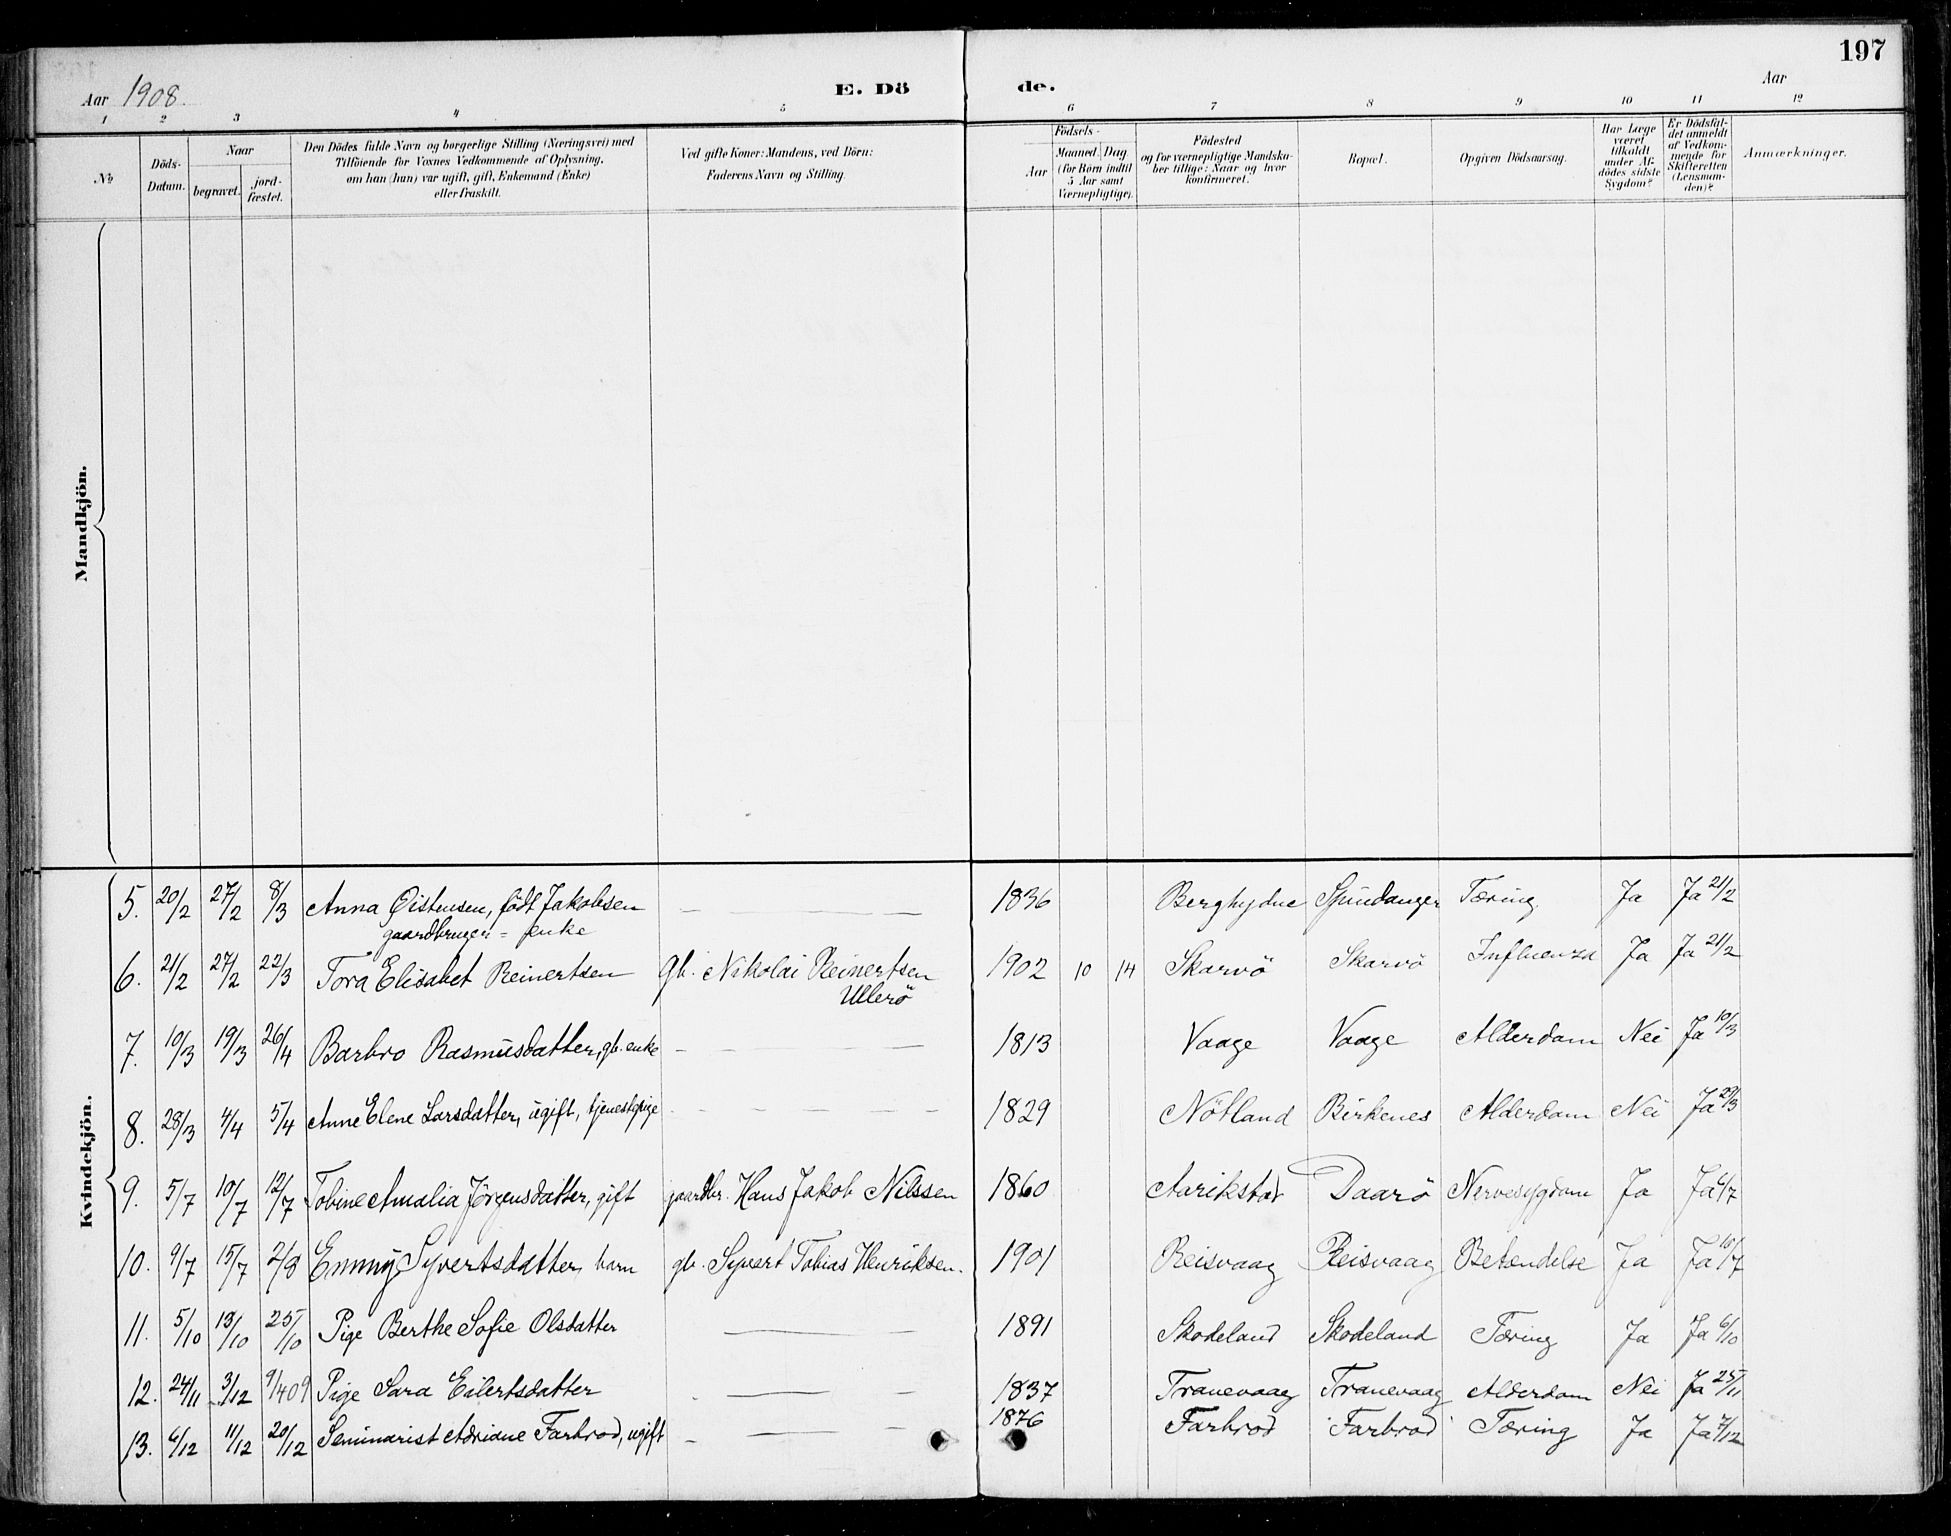 197
Aar 1908. E. Dö de. Aar
1 2 3 4 5 6 7 8 9 10 11 12
№ Döds-Datum. Naar begravet. jord-fæstet. Den Dödes fulde Navn og borgerlige Stilling (Næringsvei) med Tilföiende for Voxnes Vedkommende af Oplysning, om han (hun) var ugift, gift, Enkemand (Enke) eller fraskilt. Ved gifte Koner: Mandens, ved Börn: Faderens Navn og Stilling. Födsels- Aar Maaned. Dag (for Börn indtil 5 Aar samt Værnepligtige). Födested og for værnepligtige Mandskaber tillige: Naar og hvor konfirmeret. Bopæl. Opgiven Dödsaarsag. Har Læge været tilkaldt under Afdödes sidste Sygdom? Er Dödsfaldet anmeldt af Vedkommende for Skifteretten (Lensmanden)? Anmærkninger.
Mandkjön.
Kvindekjön.
5. 20/2 27/2 8/3 Anna Öistensen, født Jakobsen — — 1836 Sjundanger Tæring. Ja Ja 21/2
gaardbruger = enke
6. 21/2 27/2 22/3 Tora Elisabet Reinertsen Gb. Nikolai Reinertsen 1902 10 14 Skarvö Skarvö Influenza Ja Ja 21/2
Ullerö
7. 10/3 19/3 26/4 Barbro Rasmusdatter, gb. enke — — — 1813 Vaage Vaage Alderdom Nei Ja 10/3
8. 28/3 4/4 5/4 Anne Elene Larsdatter, ugift, tjenestepige — — — 1829 Nötland Birkenes Alderdom Nei Ja 29/3
9. 5/7 10/7 12/7 Tobine Amalia Jörgensdatter, gift gaardbr. Hans Jakob Nilssen 1860 Aarikstad Daarö Nervesygdom Ja Ja 6/7
10. 9/7 15/7 2/8 Emmy Syvertsdatter, barn gb. Syvert Tobias Henriksen. 1901 Reisvaag Reisvaag Betændelse Ja Ja 10/7
11. 5/10 13/10 25/10 Pige Berthe Sofie Olsdatter — — 1891 Skodeland Skodeland Tæring Ja Ja 6/10
12. 24/11 3/12 9/4 09 Pige Sara Eilertsdatter — — — 1837 Tranevaag Tranevaag Alderdom Nei Ja 25/11
13. 6/12 11/12 20/12 Seminarist Adriane Farbrod, ugift — — — 1876 Farbrod Farbrod Tæring Ja Ja 7/12